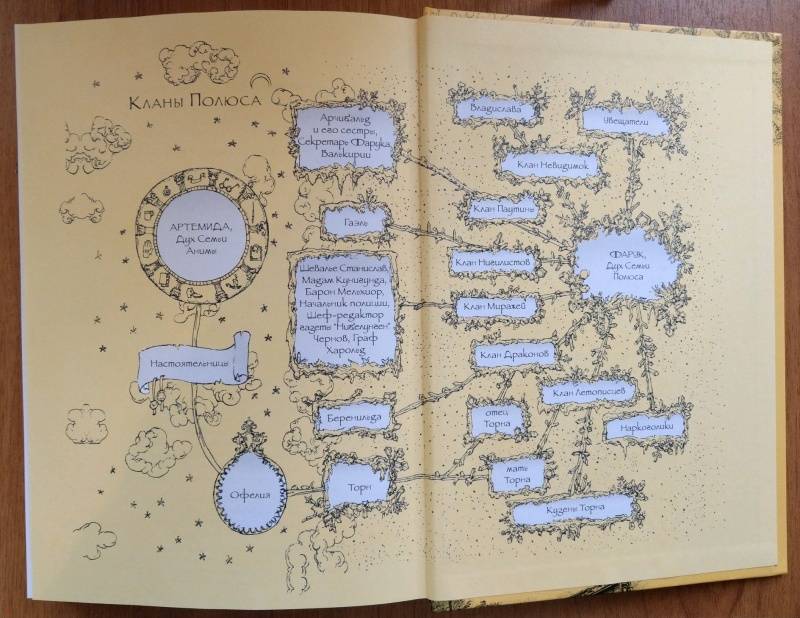 Кланы Полюса
Арчибальд
и его сестры,
Секретарь Фарука,
Валькирии
Владислава
Увещатели
Клан Невидимок
АРТЕМИДА,
Дух Семьи
Анимы
Гаэль
Клан Паутины
Клан Нигилистов
ФАРУК,
Дух Семьи
Полюса
Шевалье Станислав,
Мадам Кунигунда,
Барон Мельхиор,
Начальник полиции,
Шеф-редактор
газеты "Нибелунген"
Чернов, Граф
Харольд
Клан Миражей
Настоятельницы
Клан Драконов
Клан Летописцев
Беренильда
отец
Торна
Наркоголики
Офелия
Торн
мать
Торна
Кузены Торна